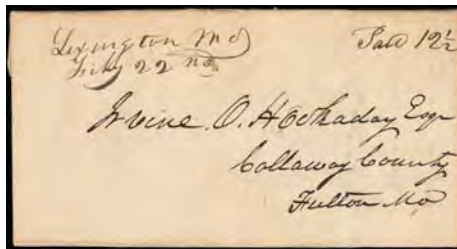 Lexington Mo
Feby 22 nd
Paid 12½
Irvine. O. Hockaday Esqr
Callaway County
Fulton Mo